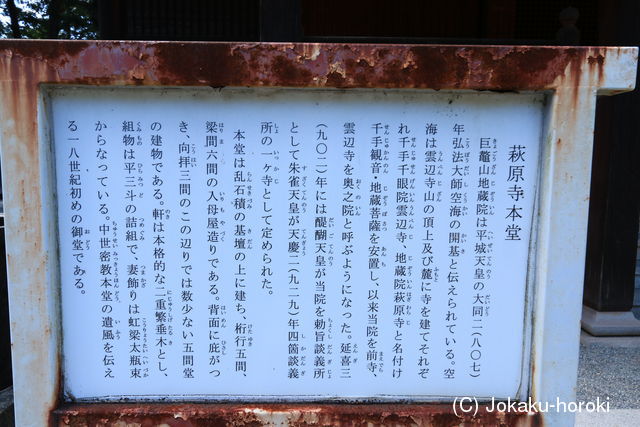 萩原寺本堂
巨鼇山地蔵院は平城天皇の大同二(八〇七)
年弘法大師空海の開基と伝えられている。空
海は雲辺寺山の頂上及び麓に寺を建てそれぞ
れ千手千眼院雲辺寺、地蔵院萩原寺と名付け
千手観音・地蔵菩薩を安置し、以来当院を前寺、
雲辺寺を奥之院と呼ぶようになった。延喜三
(九〇二)年には醍醐天皇が当院を勅旨談義所
として朱雀天皇が天慶二(九二九)年四箇談義
所の一ヶ寺として定められた。
本堂は乱石積の基壇の上に建ち、桁行五間、
梁間六間の入母屋造りである。背面に庇がつ
き、向拝三間のこの辺りでは数少ない五間堂
の建物である。軒は本格的な二重繁垂木とし、
組物は平三斗の詰組で、妻飾りは虹梁大瓶束
からなっている。中世密教本堂の遺風を伝え
る一八世紀初めの御堂である。
(C) Jokaku-horoki